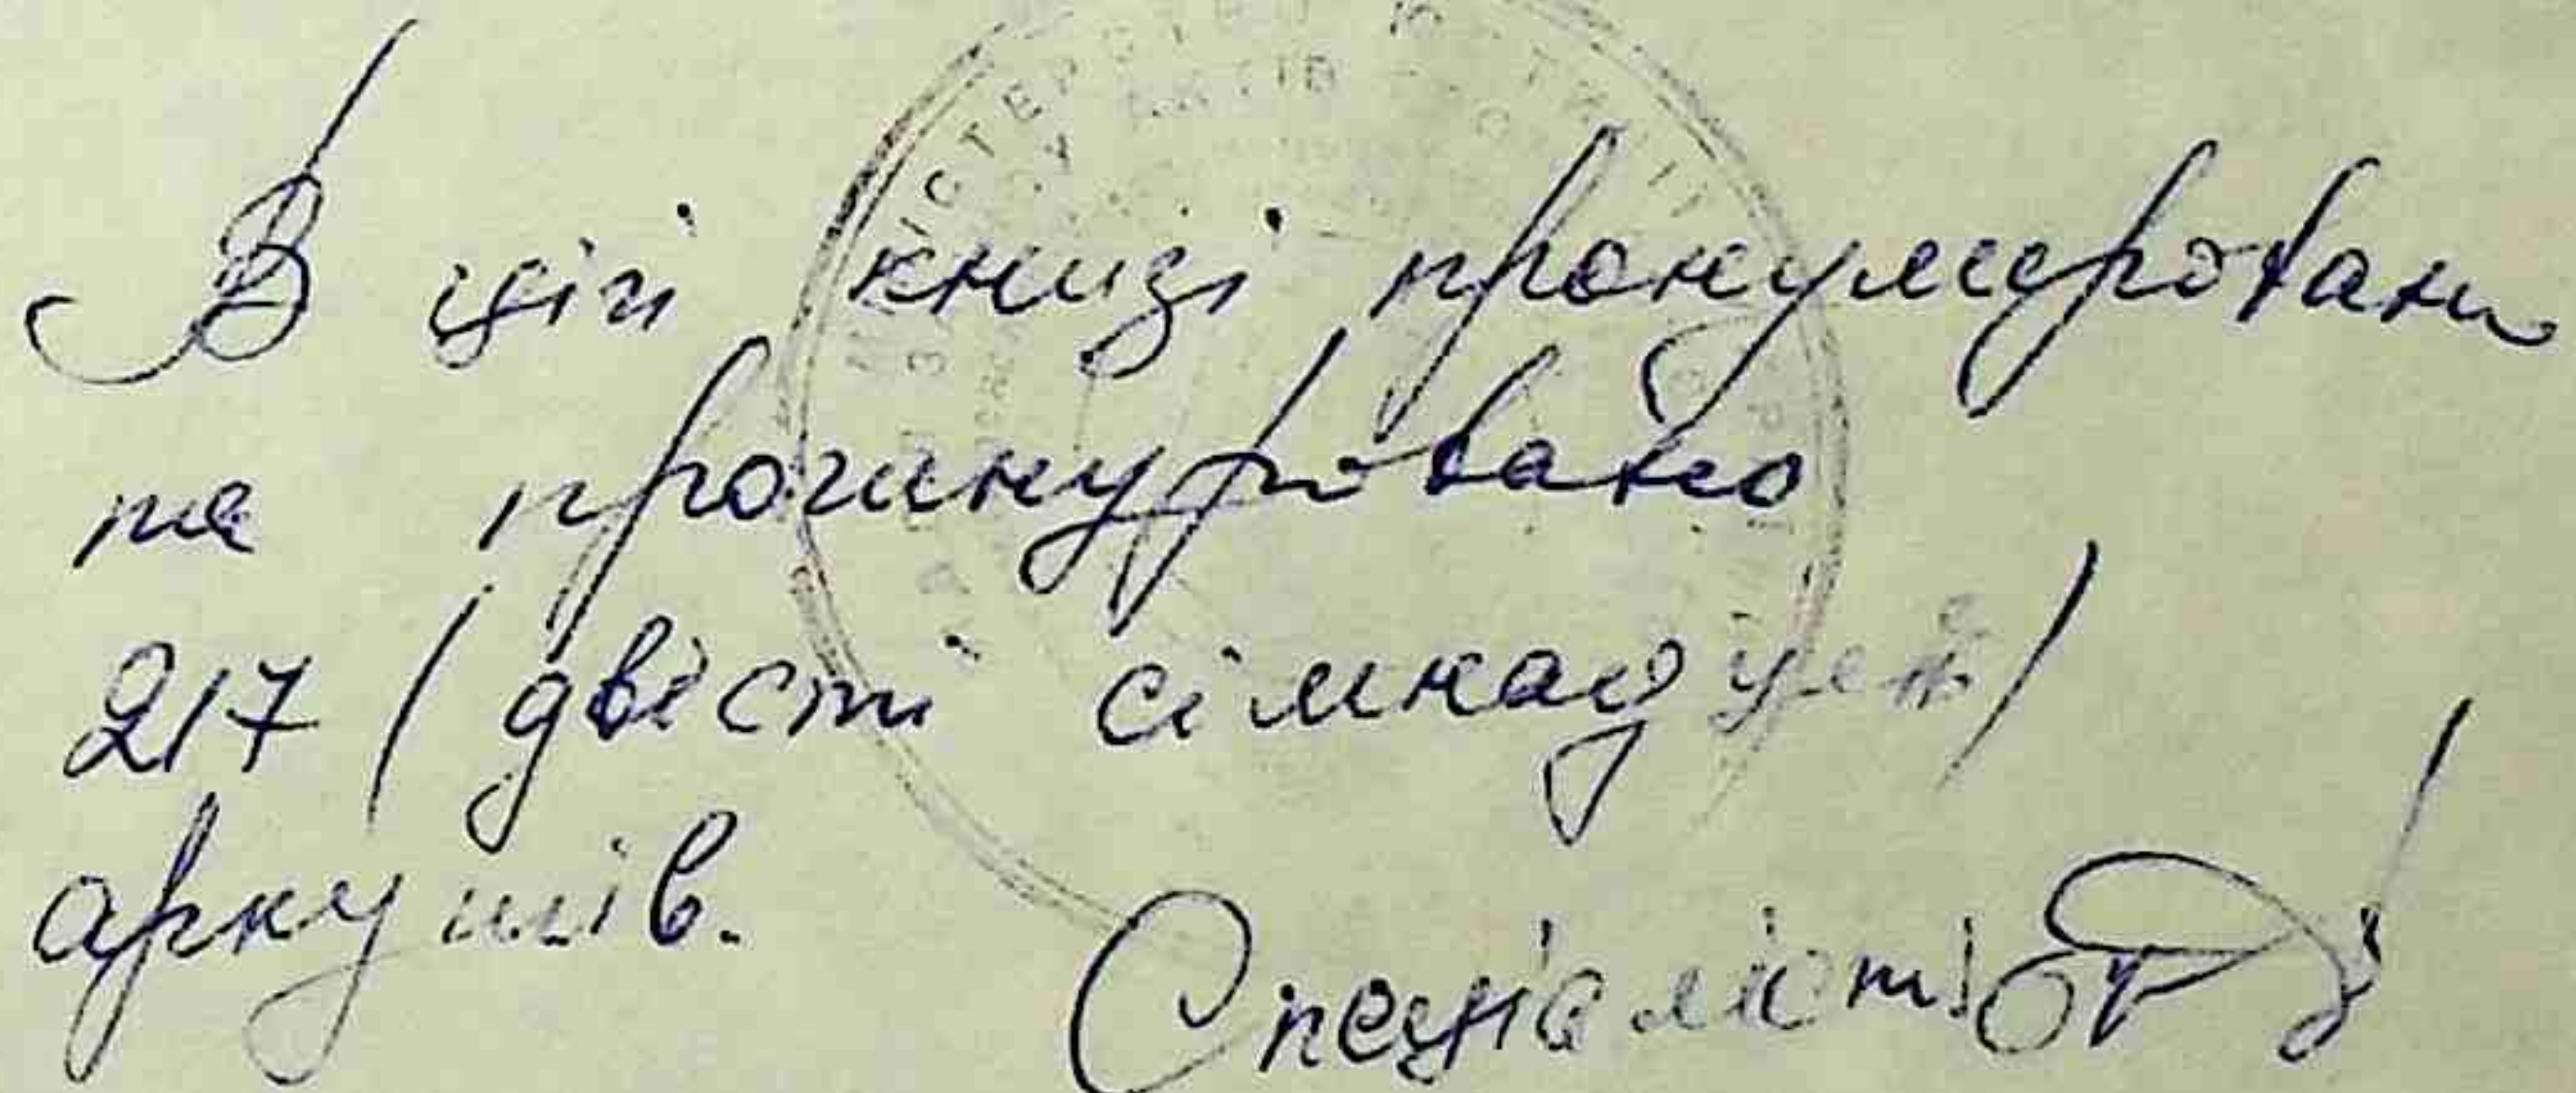 В цій книзі пронумерован
та прошнуровано
217 (двісті сімнадцять)
аркушів.
Спеціаліст